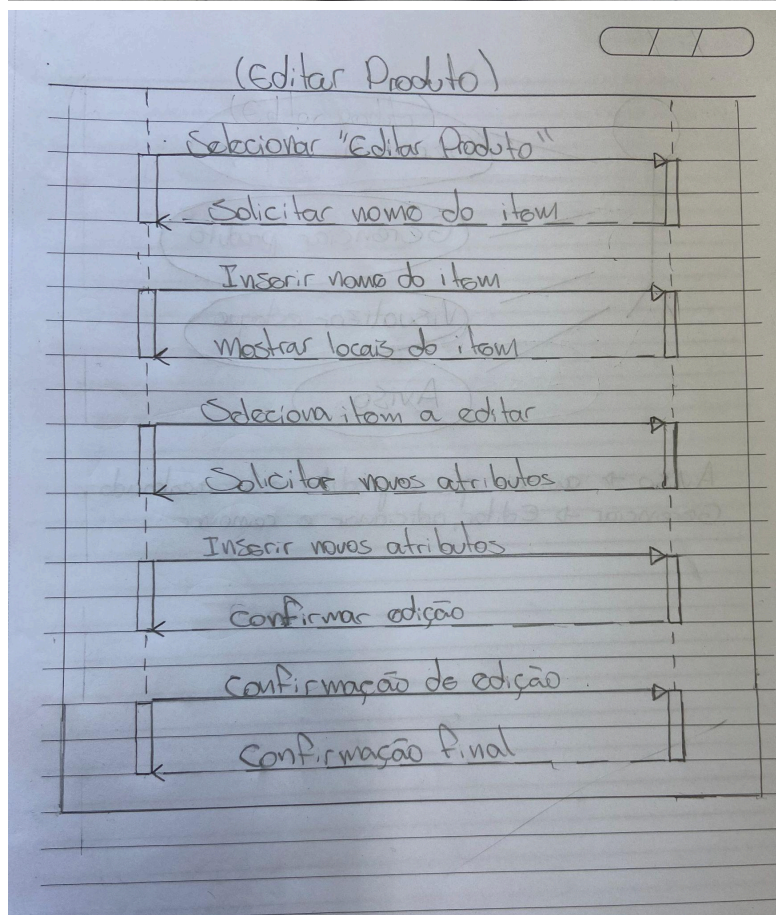 (Editar Produto)
Selecionar "Editar Produto"
Solicitar nome do item
Inserir nome do item
Mostrar locais do item
Seleciona item a editar
Solicitar novos atributos
Inserir novos atributos
Confirmar edição
Confirmação de edição
Confirmação final